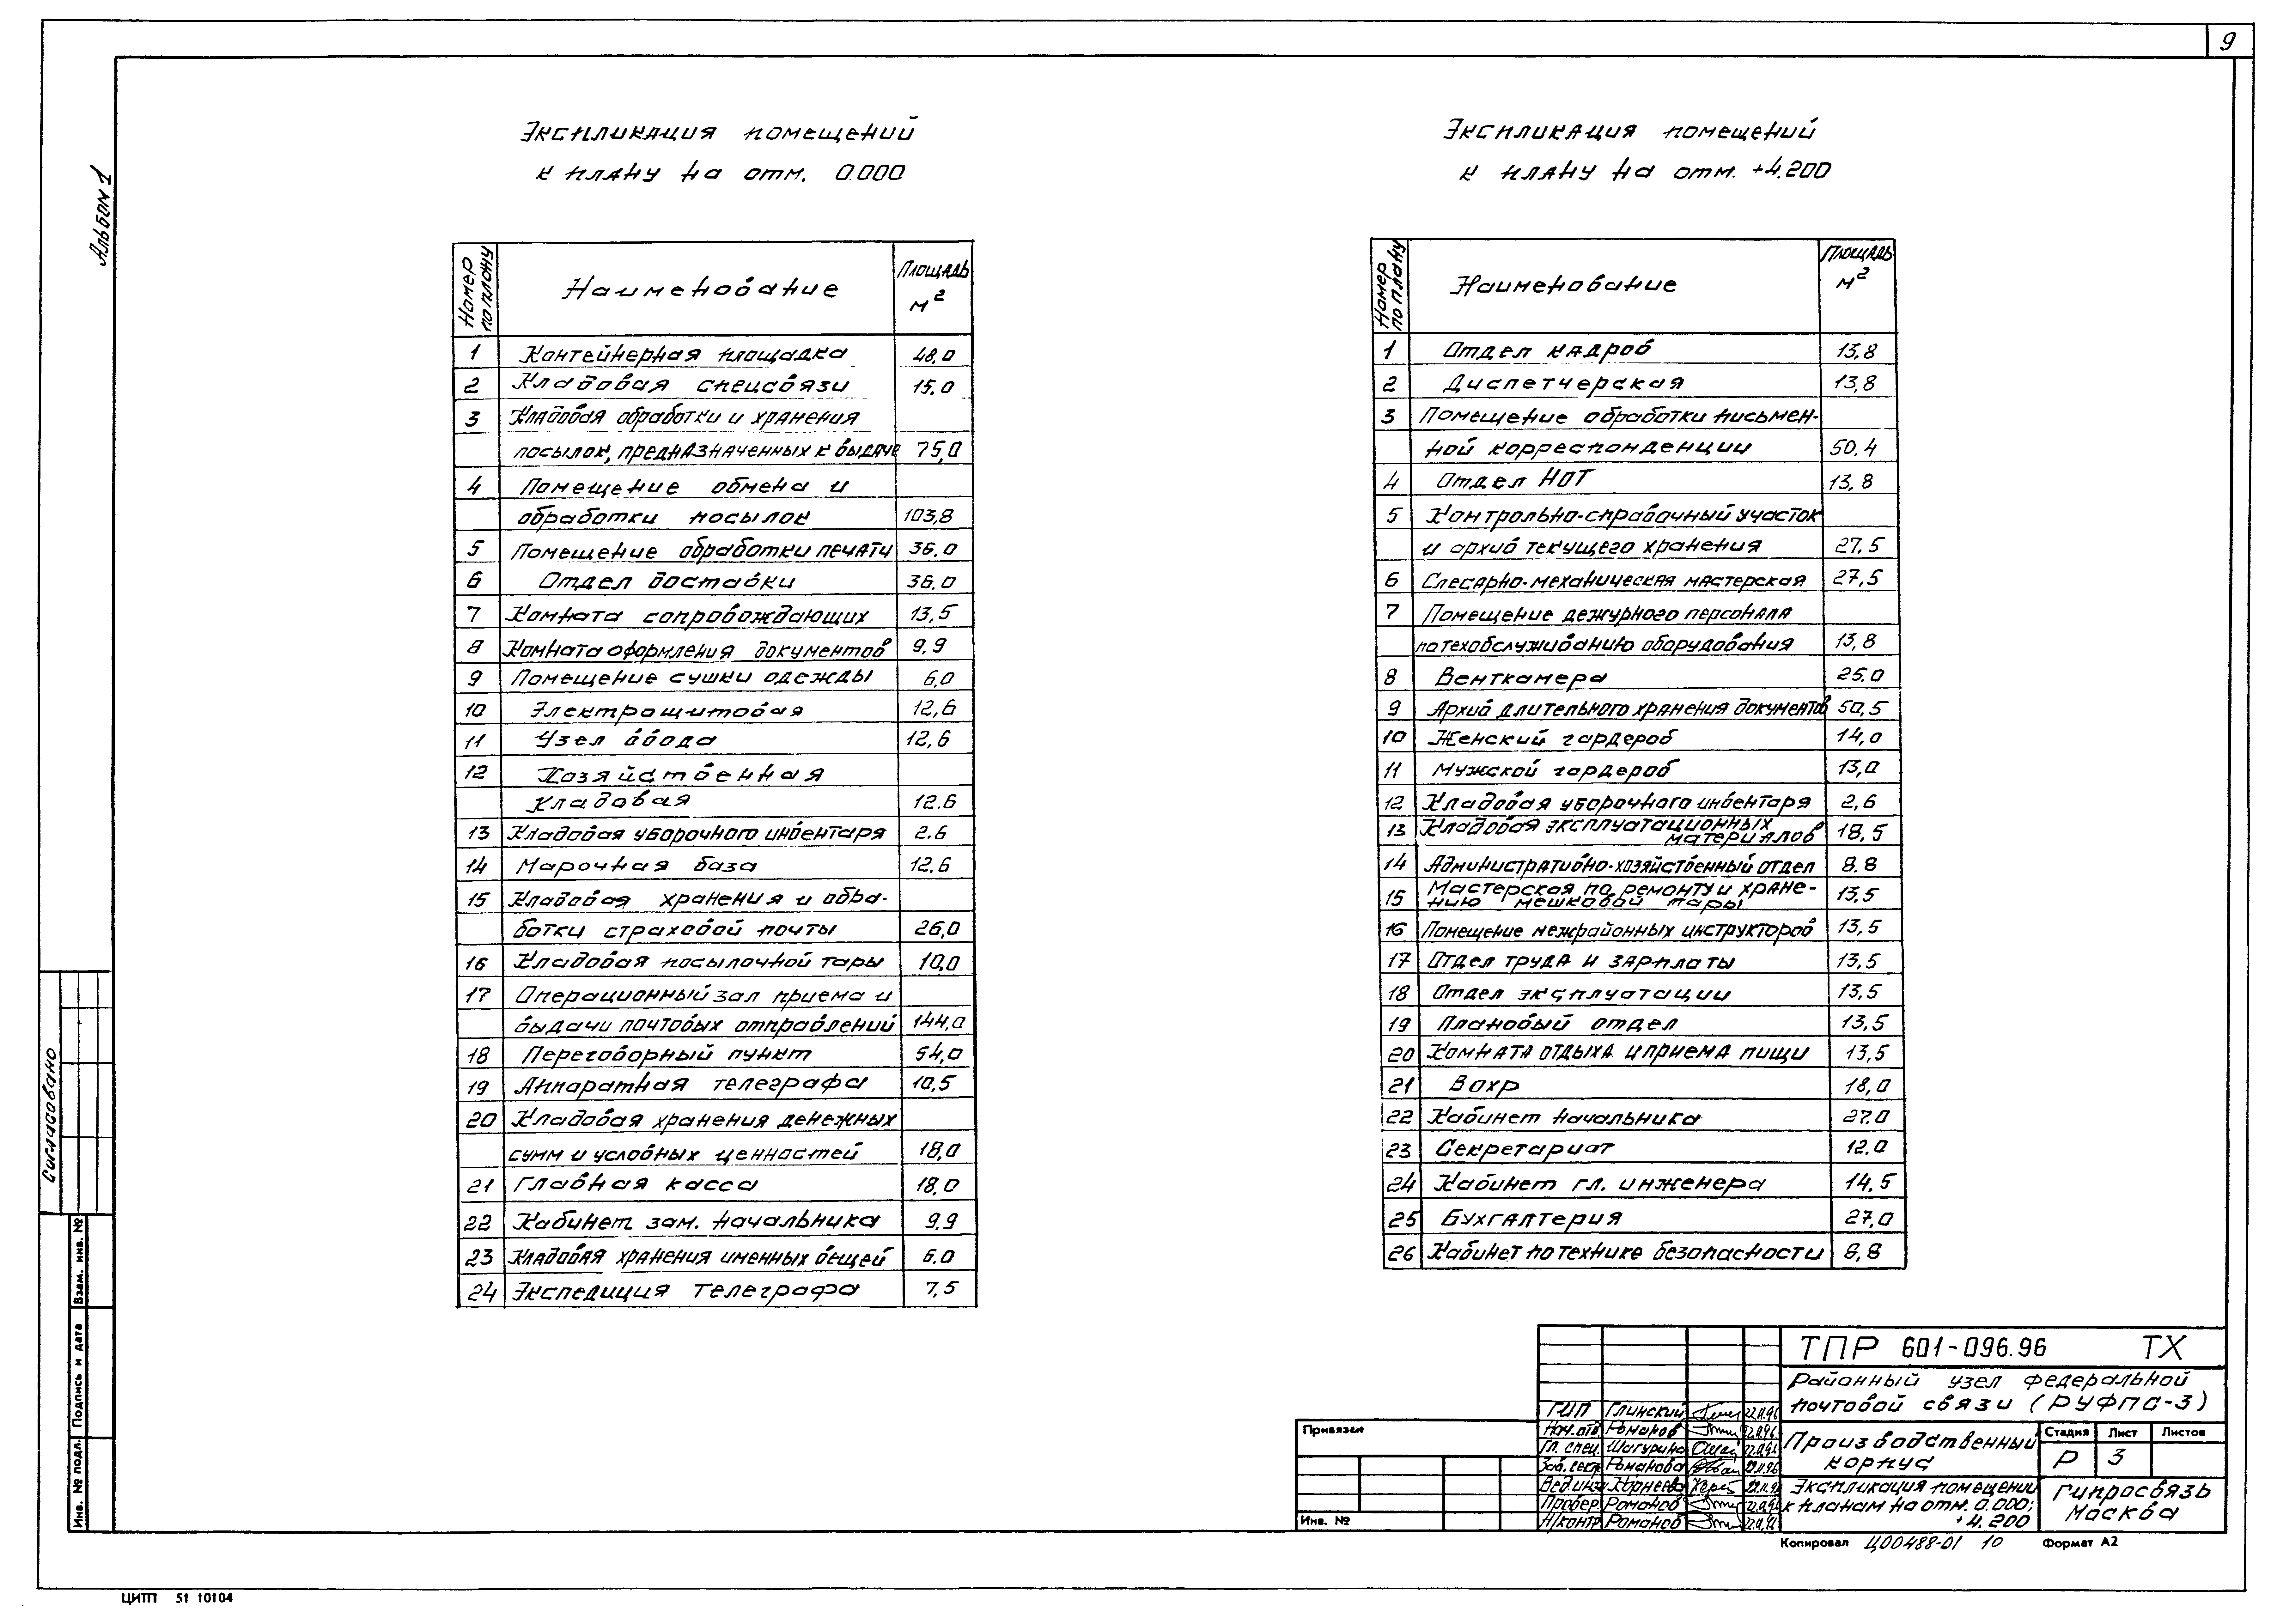 9
Альбом 1
Экспликация помещений
к плану на отм. 0.000
Номер по плану Наименование Площадь м²
1 Контейнерная площадка 48,0
2 Кладовая спецсвязи 15,0
3 Кладовая обработки и хранения
посылок, предназначенных к выдаче 75,0
4 Помещение обмена и
обработки посылок 103,8
5 Помещение обработки печати 36,0
6 Отдел доставки 36,0
7 Комната сопровождающих 13,5
8 Комната оформления документов 9,9
9 Помещение сушки одежды 6,0
10 Электрощитовая 12,6
11 Узел ввода 12,6
12 Хозяйственная
кладовая 12.6
13 Кладовая уборочного инвентаря 2.6
14 Марочная база 12.6
15 Кладовая хранения и обра-
ботки страховой почты 26,0
16 Кладовая посылочной тары 10,0
17 Операционный зал приема и
выдачи почтовых отправлений 144,0
18 Переговорный пункт 54,0
19 Аппаратная телеграфа 10,5
20 Кладовая хранения денежных
сумм и условных ценностей 18,0
21 Главная касса 18,0
22 Кабинет зам. начальника 9,9
23 Кладовая хранения именных вещей 6.0
24 Экспедиция телеграфа 7,5
Экспликация помещений
к плану на отм. +4.200
Номер по плану Наименование Площадь м²
1 Отдел кадров 13,8
2 Диспетчерская 13,8
3 Помещение обработки письмен-
ной корреспонденции 50.4
4 Отдел НОТ 13,8
5 Контрольно-справочный участок
и архив текущего хранения 27,5
6 Слесарно-механическая мастерская 27,5
7 Помещение дежурного персонала
по техобслуживанию оборудования 13,8
8 Венткамера 25,0
9 Архив длительного хранения документов 50,5
10 Женский гардероб 14,0
11 Мужской гардероб 13,0
12 Кладовая уборочного инвентаря 2,6
13 Кладовая эксплуатационных
материалов 18,5
14 Административно-хозяйственный отдел 8.8
15 Мастерская по ремонту и хране-
нию мешковой тары 13,5
16 Помещение межрайонных инструкторов 13,5
17 Отдел труда и зарплаты 13,5
18 Отдел эксплуатации 13,5
19 Плановый отдел 13,5
20 Комната отдыха и приема пищи 13,5
21 Вохр 18,0
22 Кабинет начальника 27.0
23 Секретариат 12.0
24 Кабинет гл. инженера 14,5
25 Бухгалтерия 27,0
26 Кабинет по технике безопасности 8,8
Согласовано
Взам. инв. №
Подпись и дата
Инв. № подл.
Привязан
Инв. №
ГИП Глинский 22.11.96
Нач. отд. Романов 22.11.96
Гл. спец. Шагурина 22.11.96
Зав. сект. Романова 22.11.96
Вед. инж. Корнеева 22.11.96
Провер. Романов 22.11.96
Н/контр Романов 22.11.96
ТПР 601-096.96 ТХ
Районный узел федеральной
почтовой связи (РУФПС-3)
Производственный
корпус
Стадия Лист Листов
Р 3
Экспликация помещений
к планам на отм. 0.000;
+4.200
Гипросвязь
Москва
Копировал Ц00488-01 10 Формат А2
ЦИТП 51 10104